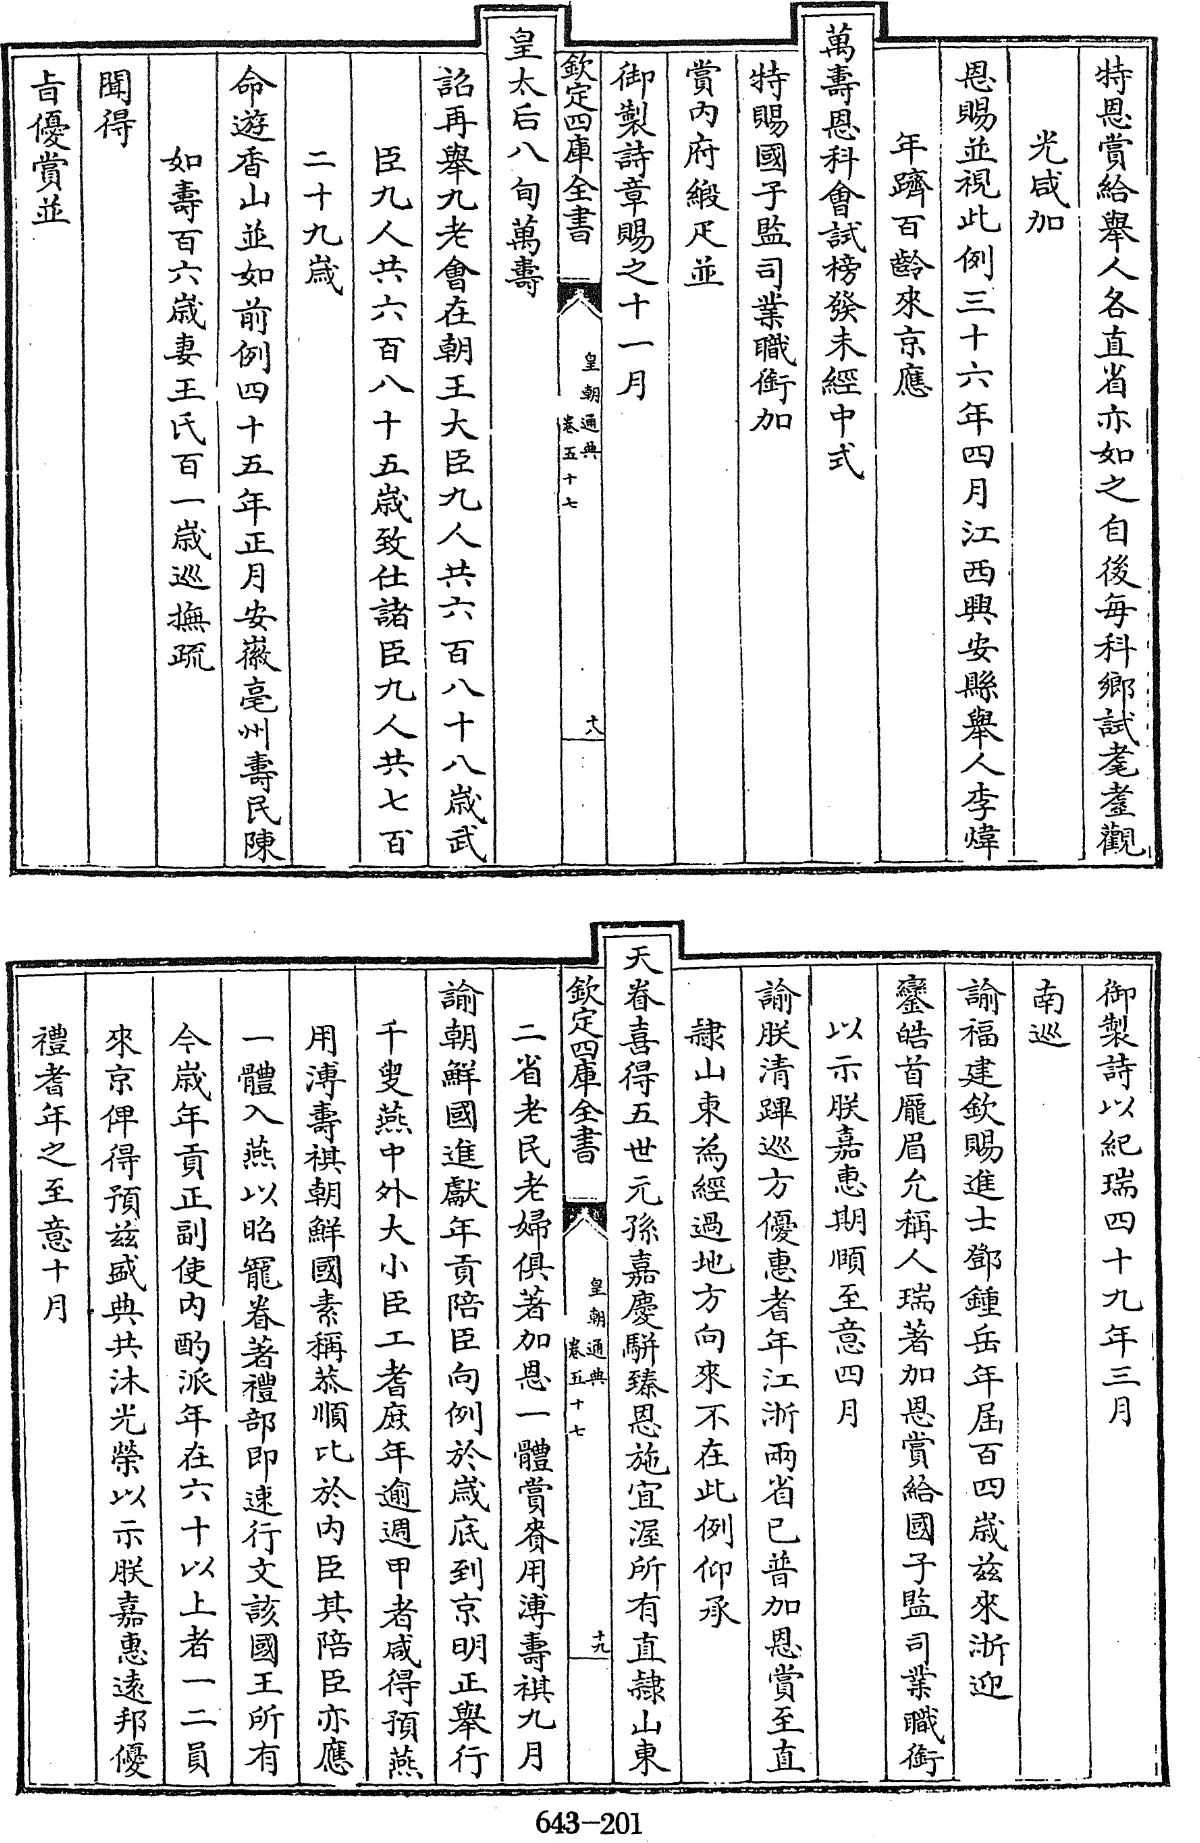 特恩賞給舉人各直省亦如之自後每科鄉試耄耋觀
光咸加
恩賜並視此例三十六年四月江西興安縣舉人李煒
年躋百齡來京應
萬壽恩科會試榜發未經中式
特賜國子監司業職銜加
賞內府緞疋並
御製詩章賜之十一月
欽定四庫全書
皇朝通典
卷五十七
十八
皇太后八旬萬壽
詔再舉九老會在朝王大臣九人共六百八十八歲武
臣九人共六百八十五歲致仕諸臣九人共七百
二十九歲
命遊香山並如前例四十五年正月安徽亳州壽民陳
如壽百六歲妻王氏百一歲巡撫疏
聞得
旨優賞並
御製詩以紀瑞四十九年三月
南巡
諭福建欽賜進士鄧鍾岳年屆百四歲茲來浙迎
鑾皓首龐眉允稱人瑞著加恩賞給國子監司業職銜
以示朕嘉惠期順至意四月
諭朕清蹕巡方優惠耆年江浙兩省已普加恩賞至直
隸山東為經過地方向來不在此例仰承
天眷喜得五世元孫嘉慶駢臻恩施宜渥所有直隸山東
欽定四庫全書
皇朝通典
卷五十七
十九
二省老民老婦俱著加恩一體賞賚用溥壽祺九月
諭朝鮮國進獻年貢陪臣向例於歲底到京明正舉行
千叟燕中外大小臣工耆庶年逾週甲者咸得預燕
用溥壽祺朝鮮國素稱恭順比於內臣其陪臣亦應
一體入燕以昭寵眷著禮部即速行文該國王所有
今歲年貢正副使內酌派年在六十以上者一二員
來京俾得預茲盛典共沐光榮以示朕嘉惠遠邦優
禮耆年之至意十月
643-201